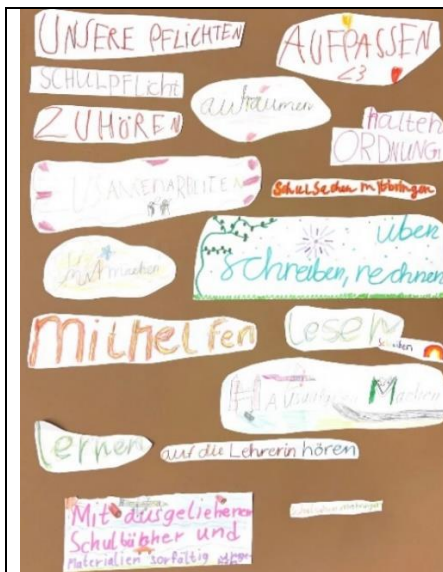 UNSERE PFLICHTEN
AUFPASSEN
<3
SCHULPFLicht
aufräumen
ZUHÖREN
halten
ORDNUNG
ZUSAMMENARBEITEN
Schulsachen mitbringen
mitmachen
üben
schreiben, rechnen
Mithelfen
lesen
Schreiben
Hausübungen Machen
Lernen
auf die Lehrerin hören
Mit ausgeliehenen
Schulbücher und
Materialien sorfältig